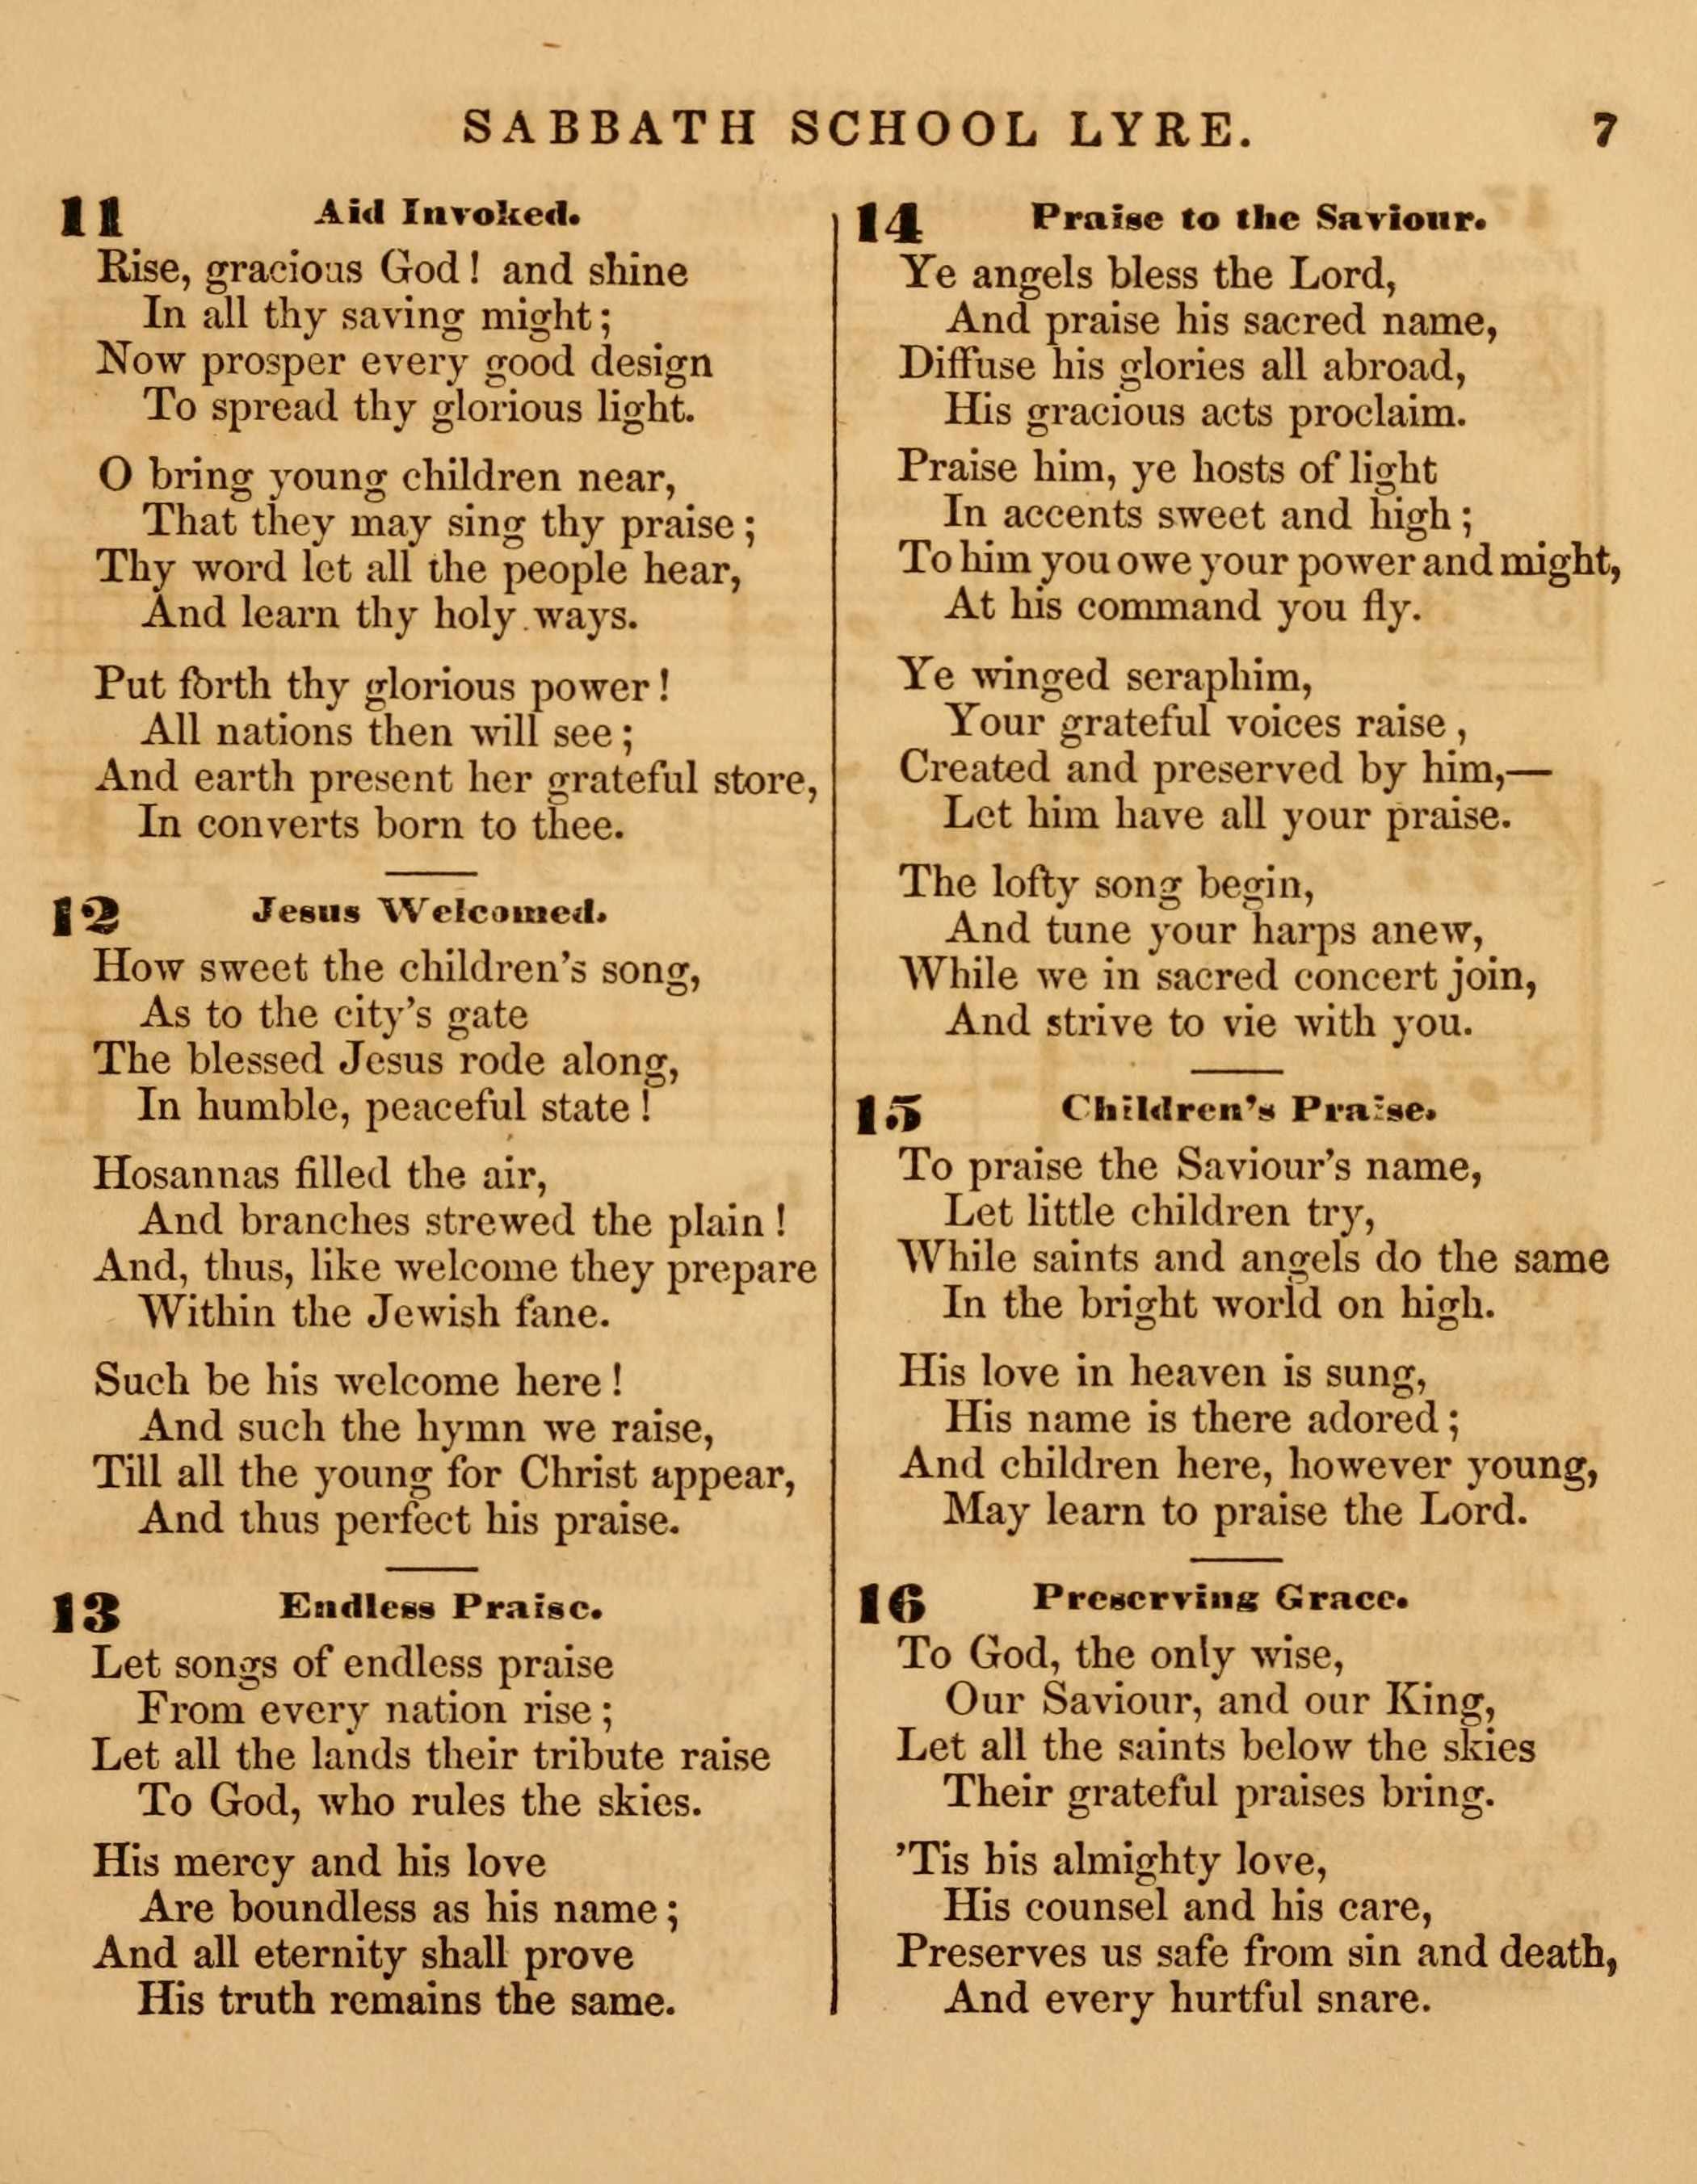 SABBATH SCHOOL LYRE. 7
11 Aid Invoked.
Rise, gracious God! and shine
In all thy saving might;
Now prosper every good design
To spread thy glorious light.
O bring young children near,
That they may sing thy praise;
Thy word let all the people hear,
And learn thy holy ways.
Put forth thy glorious power!
All nations then will see;
And earth present her grateful store,
In converts born to thee.
12 Jesus Welcomed.
How sweet the children's song,
As to the city's gate
The blessed Jesus rode along,
In humble, peaceful state!
Hosannas filled the air,
And branches strewed the plain!
And, thus, like welcome they prepare
Within the Jewish fane.
Such be his welcome here!
And such the hymn we raise,
Till all the young for Christ appear,
And thus perfect his praise.
13 Endless Praise.
Let songs of endless praise
From every nation rise;
Let all the lands their tribute raise
To God, who rules the skies.
His mercy and his love
Are boundless as his name;
And all eternity shall prove
His truth remains the same.
14 Praise to the Saviour.
Ye angels bless the Lord,
And praise his sacred name,
Diffuse his glories all abroad,
His gracious acts proclaim.
Praise him, ye hosts of light
In accents sweet and high;
To him you owe your power and might,
At his command you fly.
Ye winged seraphim,
Your grateful voices raise,
Created and preserved by him,—
Let him have all your praise.
The lofty song begin,
And tune your harps anew,
While we in sacred concert join,
And strive to vie with you.
15 Children's Praise.
To praise the Saviour's name,
Let little children try,
While saints and angels do the same
In the bright world on high.
His love in heaven is sung,
His name is there adored;
And children here, however young,
May learn to praise the Lord.
16 Preserving Grace.
To God, the only wise,
Our Saviour, and our King,
Let all the saints below the skies
Their grateful praises bring.
'Tis his almighty love,
His counsel and his care,
Preserves us safe from sin and death,
And every hurtful snare.